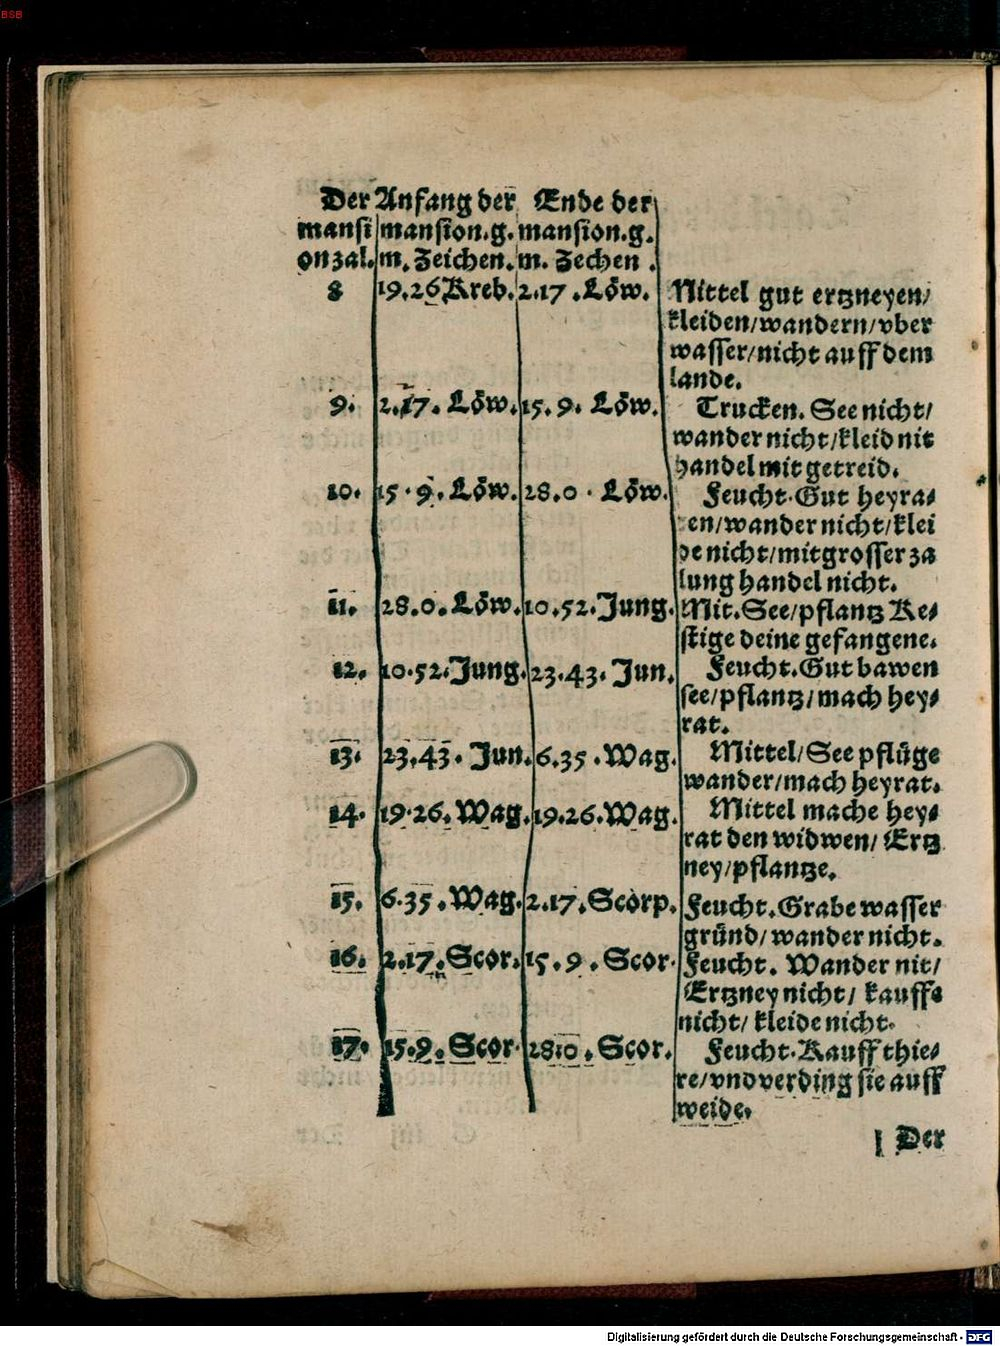 BSB
Der Anfang der Ende der
mansi mansion.g. mansion.g.
onzal. m. Zeichen. m. Zechen .
8 19.26 Kreb. 2.17 . Löw. Mittel gut ertzneyen/
kleiden/wandern/vber
wasser/nicht auff dem
lande.
9. 2.17. Löw. 15.9. Löw. Trucken. See nicht/
wander nicht/kleid nit
handel mit getreid.
10. 15.9. Löw. 28.0. Löw. Feucht. Gut heyra⸗
en/wander nicht/klei
de nicht/mitgrosser za
lung handel nicht.
11. 28.0. Löw. 10.52. Jung. Mit. See/pflantz Ke⸗
stige deine gefangene.
12. 10.52. Jung. 23.43. Jun. Feucht. Gut bawen
see/pflantz/mach hey⸗
rat.
13. 23.43. Jun. 6.35 .Wag. Mittel/See pflüge
wander/mach heyrat.
14. 19.26. Wag. 19.26. Wag. Mittel mache hey⸗
rat den widwen/ Ertz
ney/pflantze.
15. 6.35. Wag. 2.17. Scorp. Feucht. Grabe wasser
gründ/wander nicht.
16. 2.17. Scor. 15.9. Scor. Feucht. Wander nit/
Ertzney nicht/ kauffe
nicht/ kleide nicht.
17. 15.9. Scor. 28.0. Scor. Feucht. Kauff thie⸗
re/vnd verding sie auff
weide.
Der
Digitalisierung gefördert durch die Deutsche Forschungsgemeinschaft - DFG